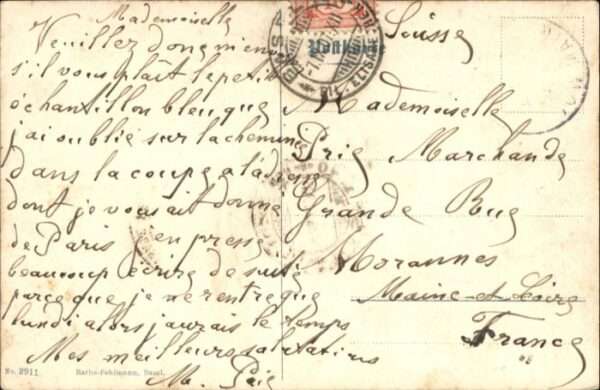 Mademoiselle
Veuillez donc m'envoyer
s'il vous plaît le petit
échantillon bleu que
j'ai oublié sur la cheminée
dans la coupe a l'adresse
dont je vous ait donné
de Paris en presse
beaucoup écrire de suite
parce que je ne rentre que
lundi alors j'aurais le temps
Mes meilleurs salutations
M.
Suisse
Mademoiselle
Marchande
Grande Rue
Morannes
Maine-et-Loire
France
No. 2911. Basel.